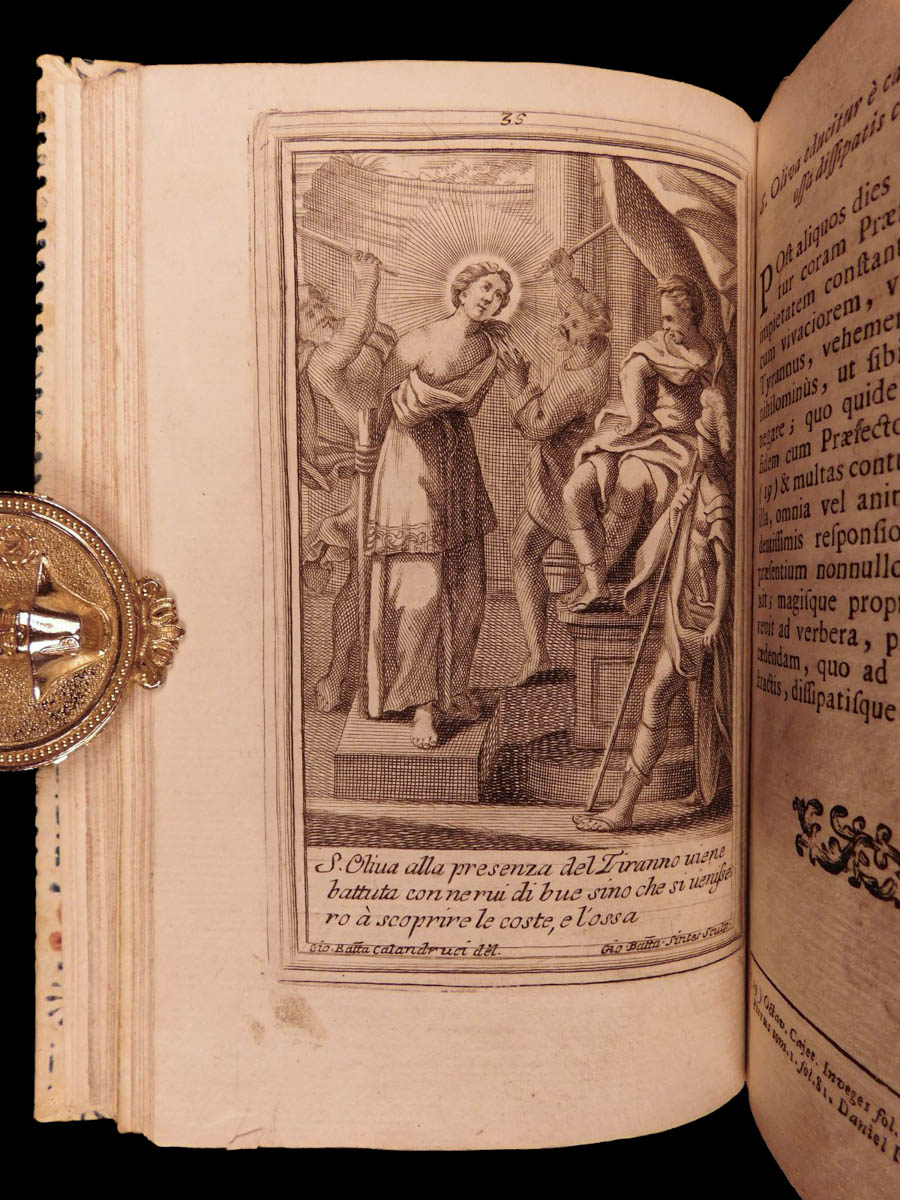 35
S. Oliua alla presenza del Tiranno uiene
battuta con nerui di bue sino che si uenisse
ro à scoprire le coste, e l'ossa
Gio. Batta Calandruci del.
Gio. Batta. Sintes Sculp.
S. Oliva educitur è
ossa dissipatis
POst aliquos dies
tur coram
impietatem constant
cum vivaciorem, v
Tyrannus, vehemen
nihilominùs, ut sibi
negare; quo quide
fidem cum Præfecto
(19) & multas contu
illa, omnia vel anim
dentissimis responsio
præsentium nonnullo
xit; magisque propr
venit ad verbera, p
cædendam, quo ad
fractis, dissipatisque
) Octav. Cajet. Inveges fol.
tom. 1. fol. 81. Daniel